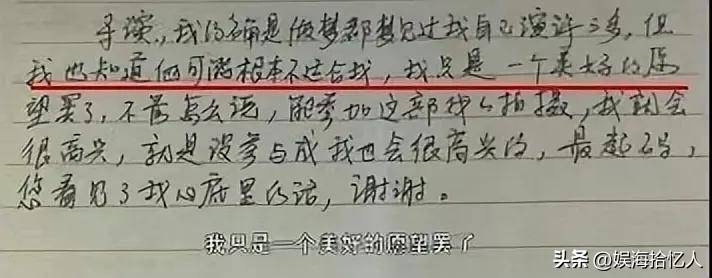 导演,我的确是做梦都梦见过我自己演许三多,但
我也知道他可能根本不适合我,我只是一个美好的愿
望罢了,不管怎么说,能参加这部戏的拍摄,我就会
很高兴,就是没参与成我也会很高兴的,最起码,
您看见了我心底里的话,谢谢。
我只是一个美好的愿望罢了
头条 @娱海拾忆人